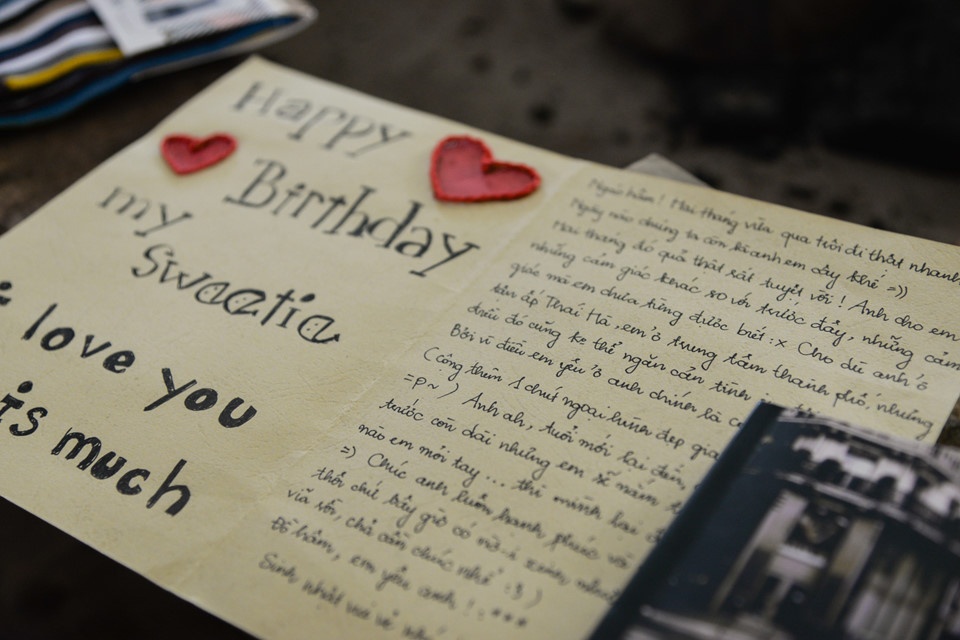 Happy
Birthday
my
Sweetie
I love you
is much
Người hâm! Hai tháng vừa qua trôi đi thật nhanh
Ngày nào chúng ta còn là anh em đấy khỉ =))
Hai tháng đó quả thật rất tuyệt vời! Anh cho em
những cảm giác khác so với trước đây, những cảm
giác mà em chưa từng được biết :x Cho dù anh ở
tân ấp Thái Hà, em ở trung tâm thành phố, những
điều đó cũng ko thể ngăn cản tình
Bởi vì điều em yêu ở anh chính là
(cộng thêm 1 chút ngoại hình đẹp
=p~) Anh ah, tuổi mới lại đến,
trước còn dài nhưng em sẽ nắm
nào em mỏi tay... thì mình
=) Chúc anh luôn hạnh phúc và
thôi chứ bây giờ có vợ-i xinh,
vừa rồi, chả cần chúc nhể :))
Đồ hâm, em yêu anh! :***
Sinh nhật vui vẻ